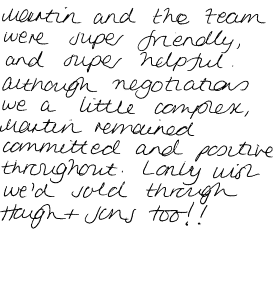 Martin and the team
were super friendly,
and super helpful.
Although negotiations
we a little complex,
Martin remained
committed and positive
throughout. I only wish
we'd sold through
Haugh + Sons too!!